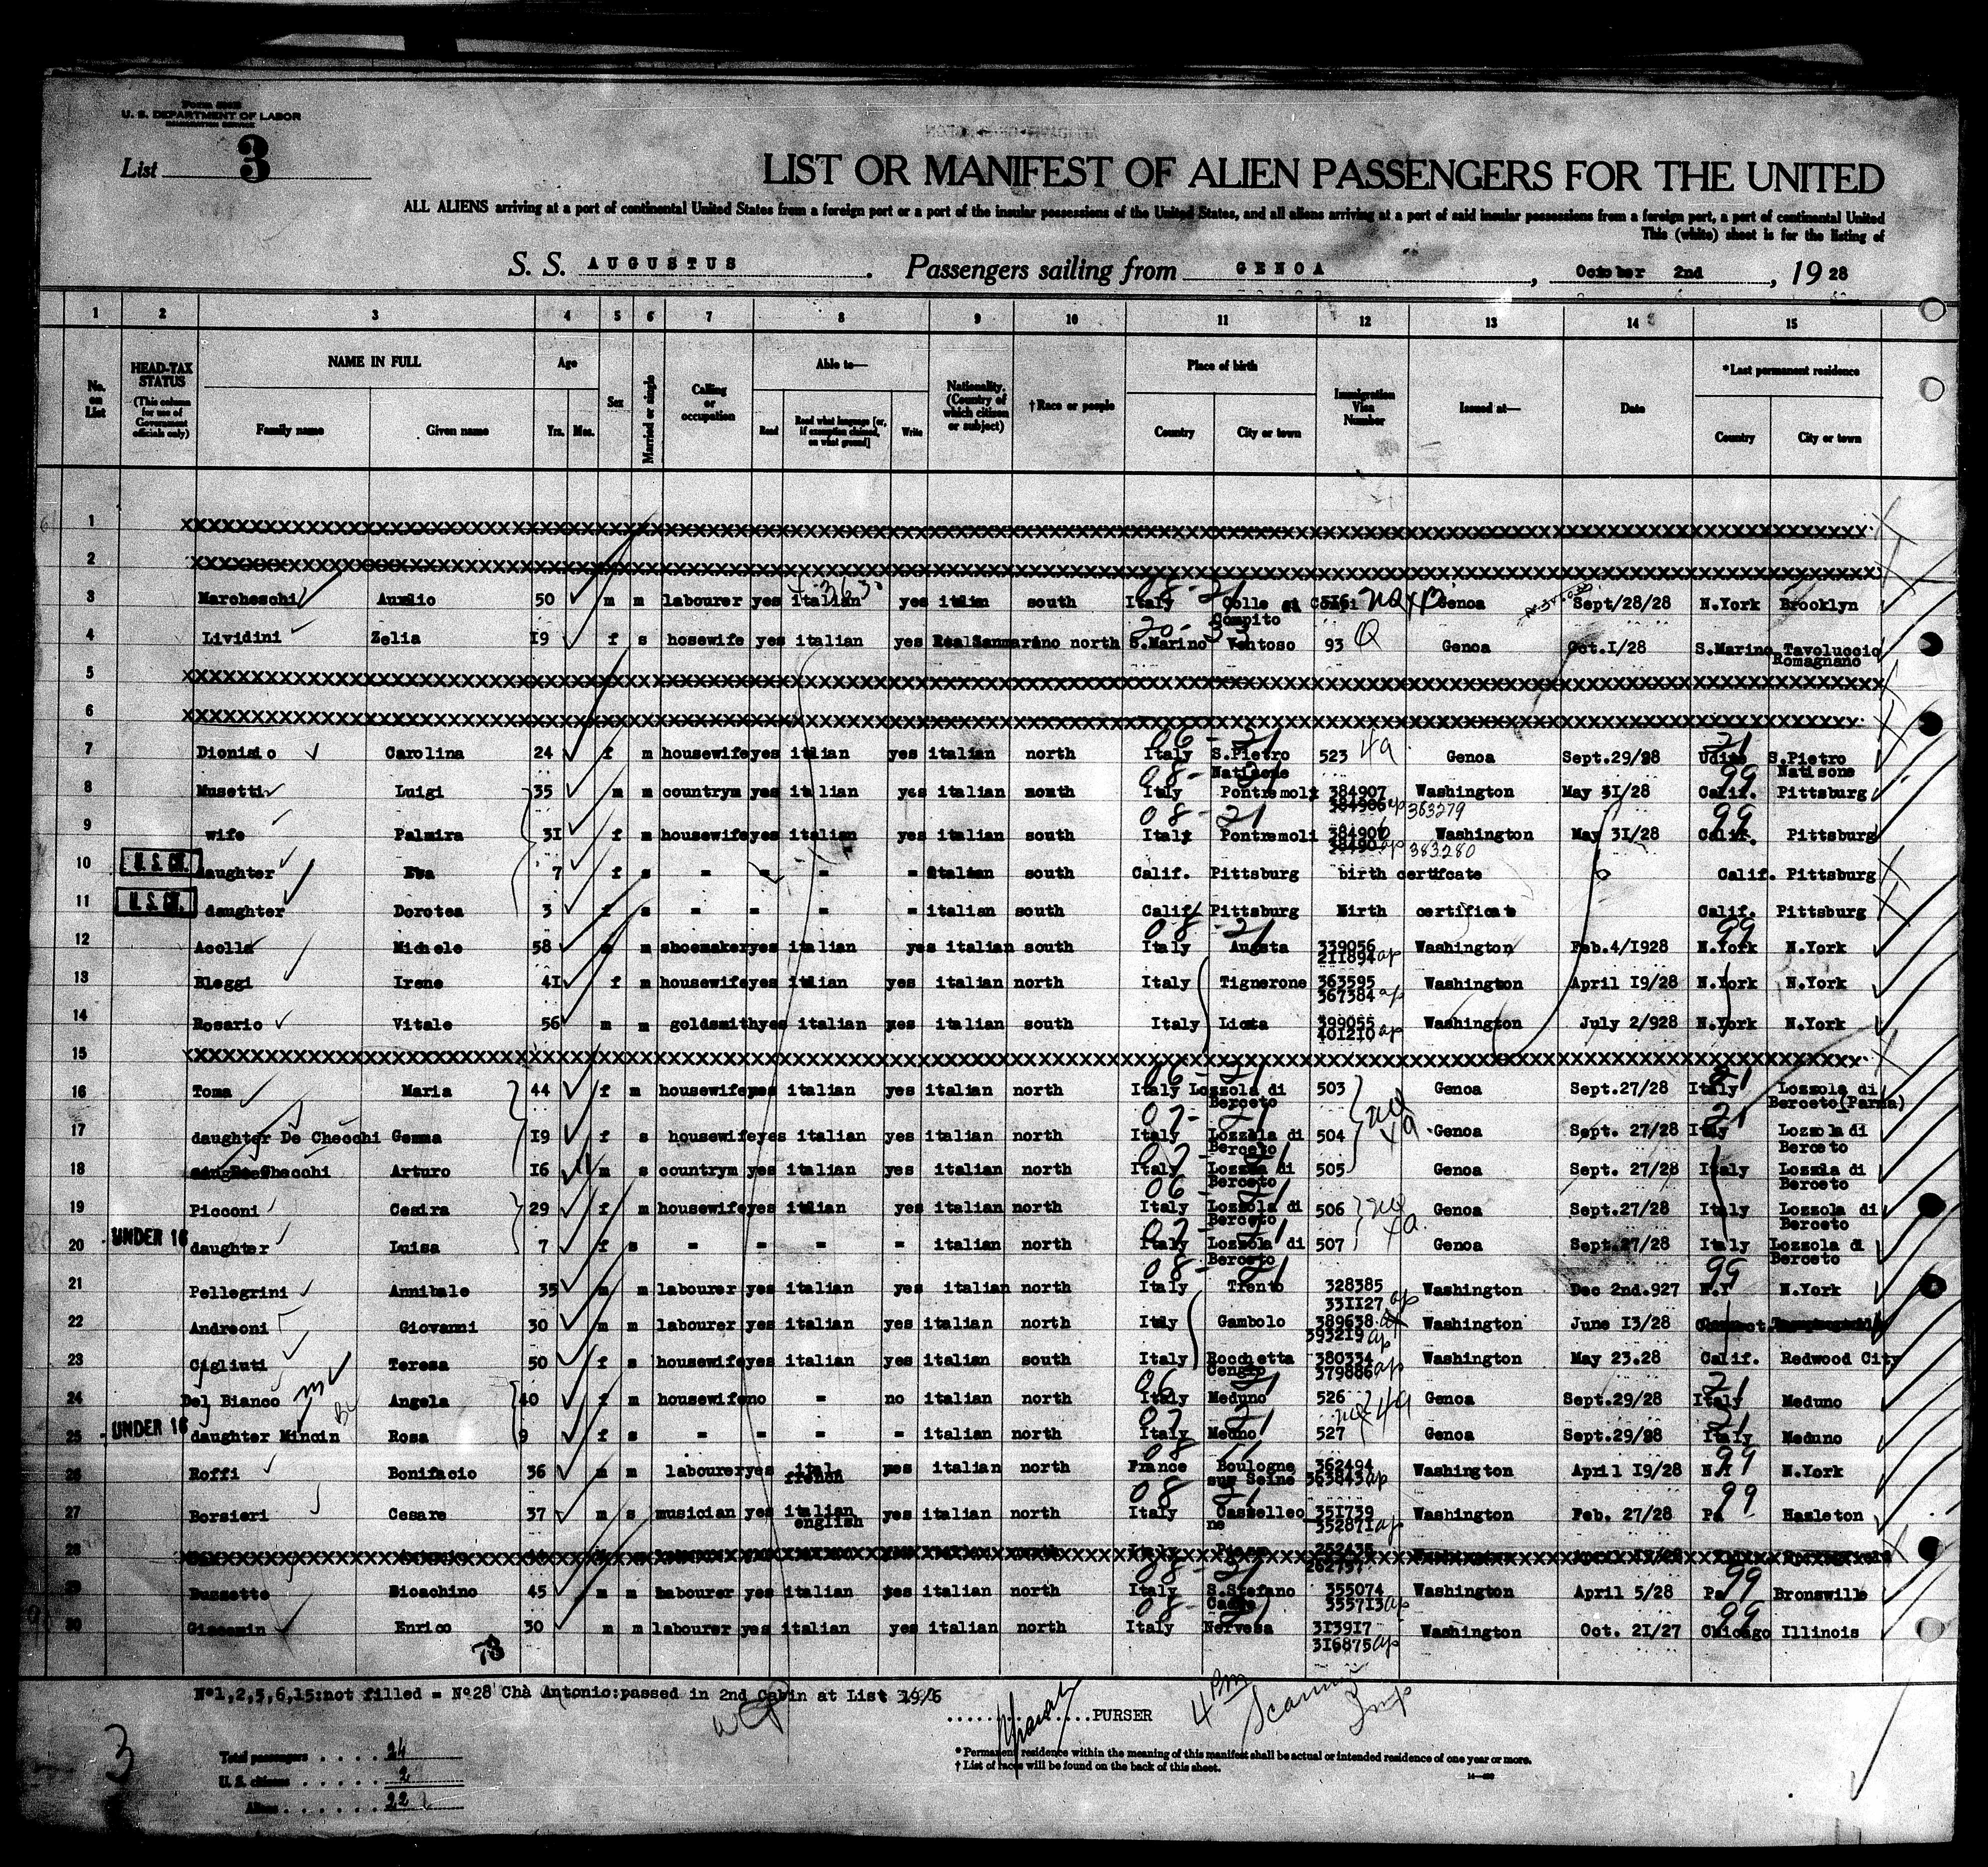 U. S. DEPARTMENT OF LABOR
List 3
LIST OR MANIFEST OF ALIEN PASSENGERS FOR THE UNITED
ALL ALIENS arriving at a port of continental United States from a foreign port or a port of the insular possessions of the United States, and all aliens arriving at a port of said insular possessions from a foreign port, a port of continental United
This (white) sheet is for the listing of
S. S. AUGUSTUS. Passengers sailing from GENOA, October 2nd, 1928
1 2 3 4 5 6 7 8 9 10 11 12 13 14 15
No. on List
HEAD-TAX STATUS (This column for use of Government officials only)
NAME IN FULL Family name Given name
Age Yrs. Mos.
Sex
Married or single
Calling or occupation
Able to— Read Read what language [or, if exemption claimed, on what ground] Write
Nationality. (Country of which citizen or subject)
†Race or people
Place of birth Country City or town
Immigration Visa Number
Issued at—
Date
*Last permanent residence Country City or town
1 XXXXXXXX
2 XXXXXXXX
3 Marcheschi Aurelio 50 m m labourer yes italian yes south Italy Colle Compito 516 Genoa Sept/28/28 N.York Brooklyn
4 Lividini Zelia I9 f s hosewife yes italian yes north S.Marino Ventoso 93 Genoa Oct.I/28 S.Marino Tavoluccio Romagnano
5 XXXXXXXX
6 XXXXXXXX
7 Dionisio Carolina 24 f m housewife yes itlian yes italian north Italy S.Pietro Natisone 523 Genoa Sept.29/28 Udine S.Pietro Natisone
8 Musetti Luigi 35 m m countrym yes italian yes italian south Italy Pontremoli 384907 363279 Washington May 3I/28 Calif. Pittsburg
9 wife Palmira 3I f m housewife yes italian yes italian south Italy Pontremoli 383280 Washington May 3I/28 Calif. Pittsburg
10 U. S. CIT. daughter Eva 7 f s - - - - italian south Calif. Pittsburg birth certifcate Calif. Pittsburg
11 U. S. CIT. daughter Dorotea 3 f s - - - - italian south Calif Pittsburg Birth certificate Calif. Pittsburg
12 Acolla Michele 58 m m shoemaker yes italian yes italian south Italy Augsta 339056 211894 ap Washington Feb.4/I928 N.York N.York
13 Bleggi Irene 4I f m housewife yes itlian yes italian north Italy Tignerone 363595 367384 ap Washington April I9/28 N.York N.York
14 Rosario Vitale 56 m m goldsmith yes italian yes italian south Italy Licata 399055 401210 ap Washington July 2/928 N.York N.York
15 XXXXXXXX
16 Toma Maria 44 f m housewife yes italian yes italian north Italy Lozzola di Berceto 503 Genoa Sept.27/28 Italy Lozzola di Berceto(Parma)
17 daughter De Checchi Gemma I9 f s housewife yes italian yes italian north Italy Lozzola di Berceto 504 Genoa Sept. 27/28 Italy Lozzola di Berceto
18 Checchi Arturo I6 m s countrym yes italian yes italian north Italy Lozzola di Berceto 505 Genoa Sept. 27/28 Italy Lozzola di Berceto
19 Picconi Cesira 29 f m housewife yes itlian yes italian north Italy Lozzola di Berceto 506 Genoa Sept.27/28 Italy Lozzola di Berceto
20 UNDER 16 daughter Luisa 7 f s - - - - italian north Italy Lozzola di Berceto 507 Genoa Sept.27/28 Italy Lozzola di Berceto
21 Pellegrini Annibale 35 m m labourer yes italian yes italian north Italy Trento 328385 33II27 ap Washington Dec 2nd.927 N.Y N.York
22 Andreoni Giovanni 30 m m labourer yes italian yes italian north Italy Gambolo 389638 393219 ap Washington June I3/28
23 Cigliuti Teresa 50 f s housewife yes italian yes italian south Italy Rocchetta Cengio 380334 379886 ap Washington May 23.28 Calif. Redwood City
24 Del Bianco Angela 40 f m housewife no - no italian north Italy Meduno 526 Genoa Sept.29/28 Italy Meduno
25 UNDER 16 daughter Mincin Rosa 9 f s - - - - italian north Italy Meduno 527 Genoa Sept.29/28 Italy Meduno
26 Roffi Bonifacio 36 m m labourer yes ital french yes italian north France Boulogne sur Seine 362494 363843 ap Washington April I9/28 N.Y N.York
27 Borsieri Cesare 37 m s musician yes italian english yes italian north Italy Castelleone 35I739 35287I ap Washington Feb. 27/28 Pa Hazleton
28 XXXXXXXX
29 Bussetto Gioachino 45 m m labourer yes italian yes italian north Italy S.Stefano Cadore 355074 3557I3 ap Washington April 5/28 Pa Bronswille
30 Giacomin Enrico 30 m m labourer yes italian yes italian north Italy Nervesa 3I39I7 3I6875 ap Washington Oct. 2I/27 Chicago Illinois
73
N°1,2,5,6,15:not filled = N°28 Chà Antonio:passed in 2nd Cabin at List
PURSER
4 PM
* Permanent residence within the meaning of this manifest shall be actual or intended residence of one year or more.
† List of races will be found on the back of this sheet.
3
Total passengers 24
U. S. citizens 2
Aliens 22